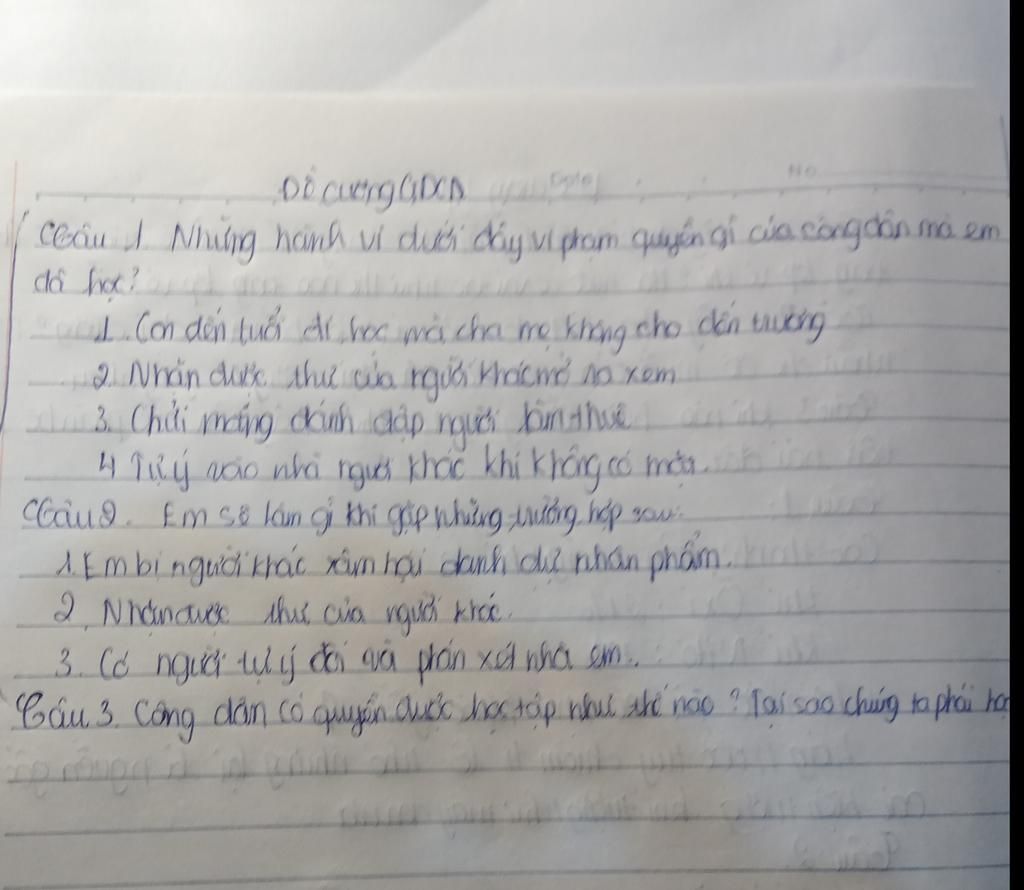 Đề cương GDCD
Câu 1. Những hành vi dưới đây vi phạm quyền gì của công dân mà em
đã học?
1. Con đến tuổi đi học mà cha mẹ không cho đến trường
2. Nhận được thư của người khác mở ra xem
3. Chửi mắng đánh đập người làm thuê
4 Tự ý vào nhà người khác khi không có
Câu 2. Em sẽ làm gì khi gặp những trường hợp sau:
1. Em bị người khác xâm hại danh dự nhân phẩm.
2. Nhận được thư của người khác.
3. Có người tự ý đòi và phán xét nhà em.
Câu 3. Công dân có quyền được học tập như thế nào? Tại sao chúng ta phải học